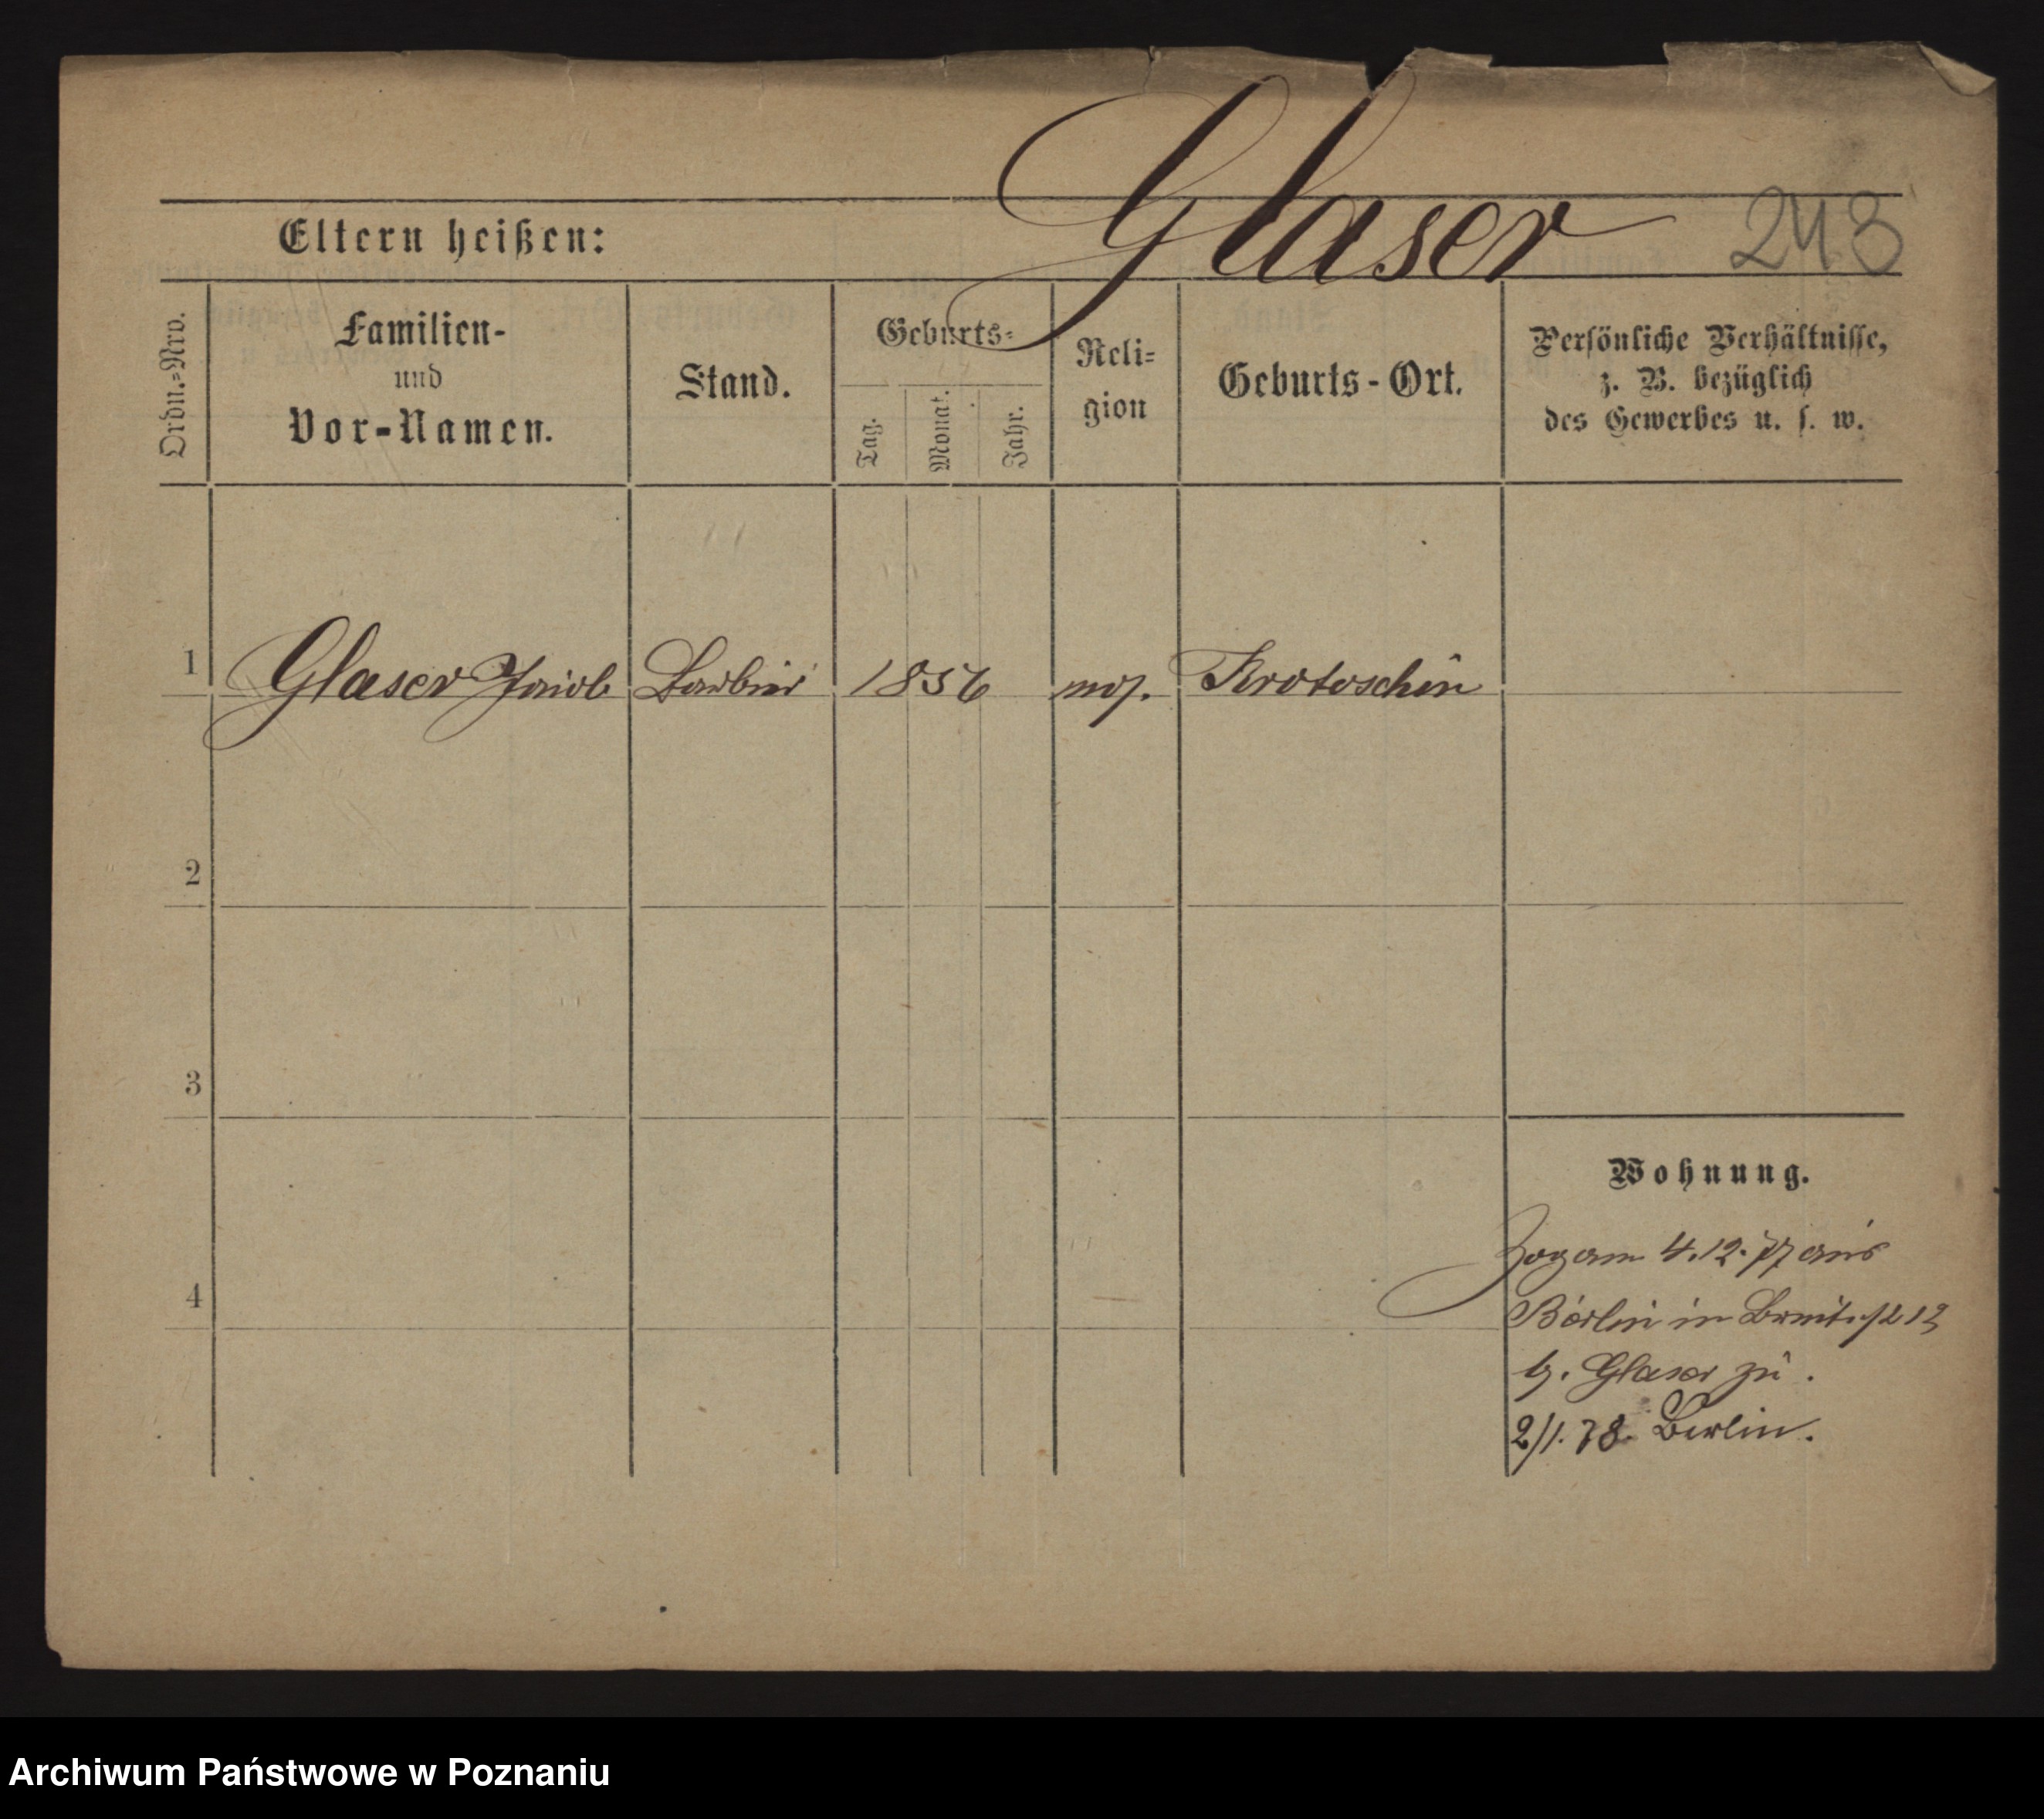 Glaser 243
Eltern heißen:
Ordn.=Nro.
Familien-
und
Vor-Namen.
Stand.
Geburts=
Tag.
Monat.
Jahr.
Reli=
gion
Geburts-Ort.
Persönliche Verhältnisse,
z. B. bezüglich
des Gewerbes u. s. w.
1 Glaser Jacob Barbier 1856 mos. Krotoschin
2
3
Wohnung.
4
Zog am 4.12.77 aus
Berlin in Breitestr 13
b. Glaser zu.
2/1.78. Berlin.
Archiwum Państwowe w Poznaniu